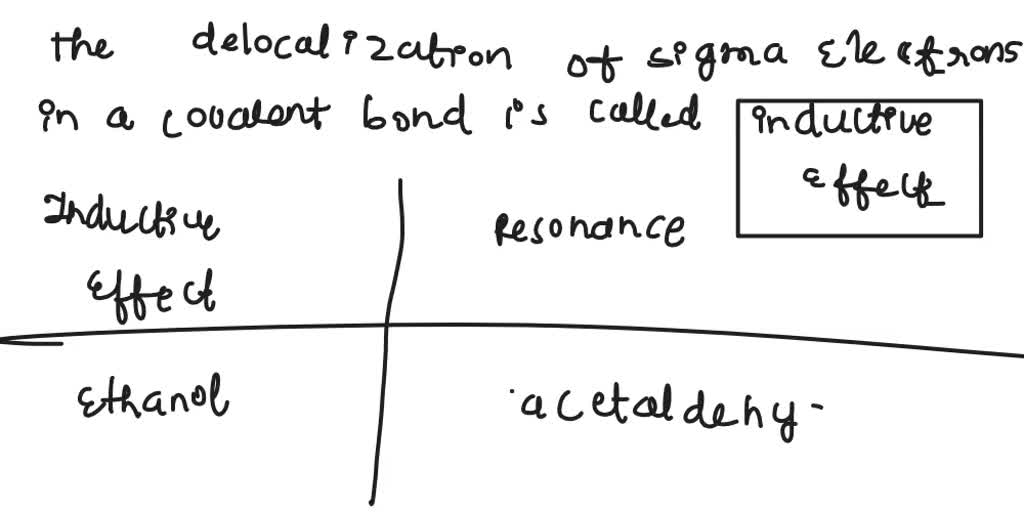 the delocalization of sigma electrons
in a covalent bond is called inductive
effect
Inductive
Effect
Resonance
Ethanol
acetaldehy-